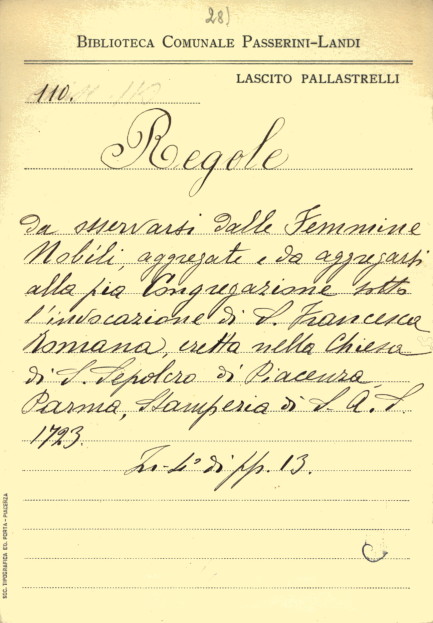 28)
BIBLIOTECA COMUNALE PASSERINI-LANDI
LASCITO PALLASTRELLI
110.
Regole
da osservarsi dalle Femmine
Nobili, aggregate e da aggregarsi
alla pia Congregazione sotto
l'invocazione di S. Francesca
Romana, eretta nella Chiesa
di S. Sepolcro di Piacenza
Parma, Stamperia di S. A. S.
1723.
In-4° di pp. 13.
SOC. TIPOGRAFICA ED. PORTA - PIACENZA